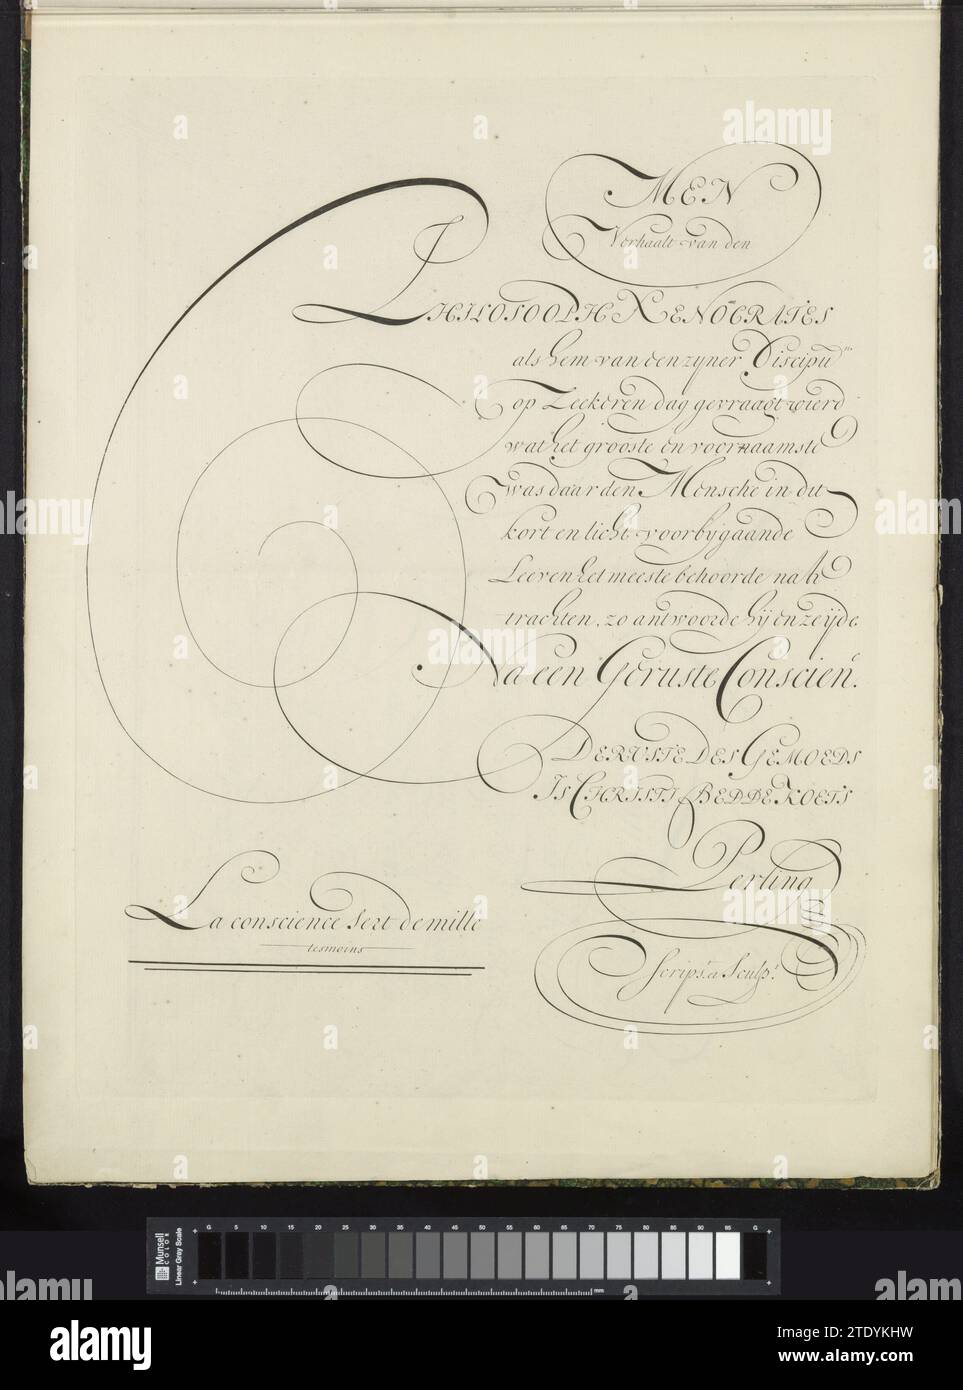 MEN
Verhaalt van den
PHILOSOOPH XENOCRATES
als hem van een zyner Discipuⁿ
op Zeekeren dag gevraagt wierd
wat het grooste en voornaamste
was daar den Mensche in dit
kort en licht voorbygaande
Leeven het meeste behoorde na te
trachten, zo antwoorde hij en zeijde
Na een Geruste Conscien.ᵉ
DE RUSTE DES GEMOEDS
IS CHRISTI BEDDE KOETS
Perling
Scrips.ᵗ et Sculp.ᵗ
La conscience sert de mille
tesmoins
Munsell
COLOR
Linear Gray Scale
G 5 10 15 20 25 30 35 40 45 50 55 60 65 70 75 80 85 90 95 G
mm
alamy
Image ID: 2TDYKHW
www.alamy.com